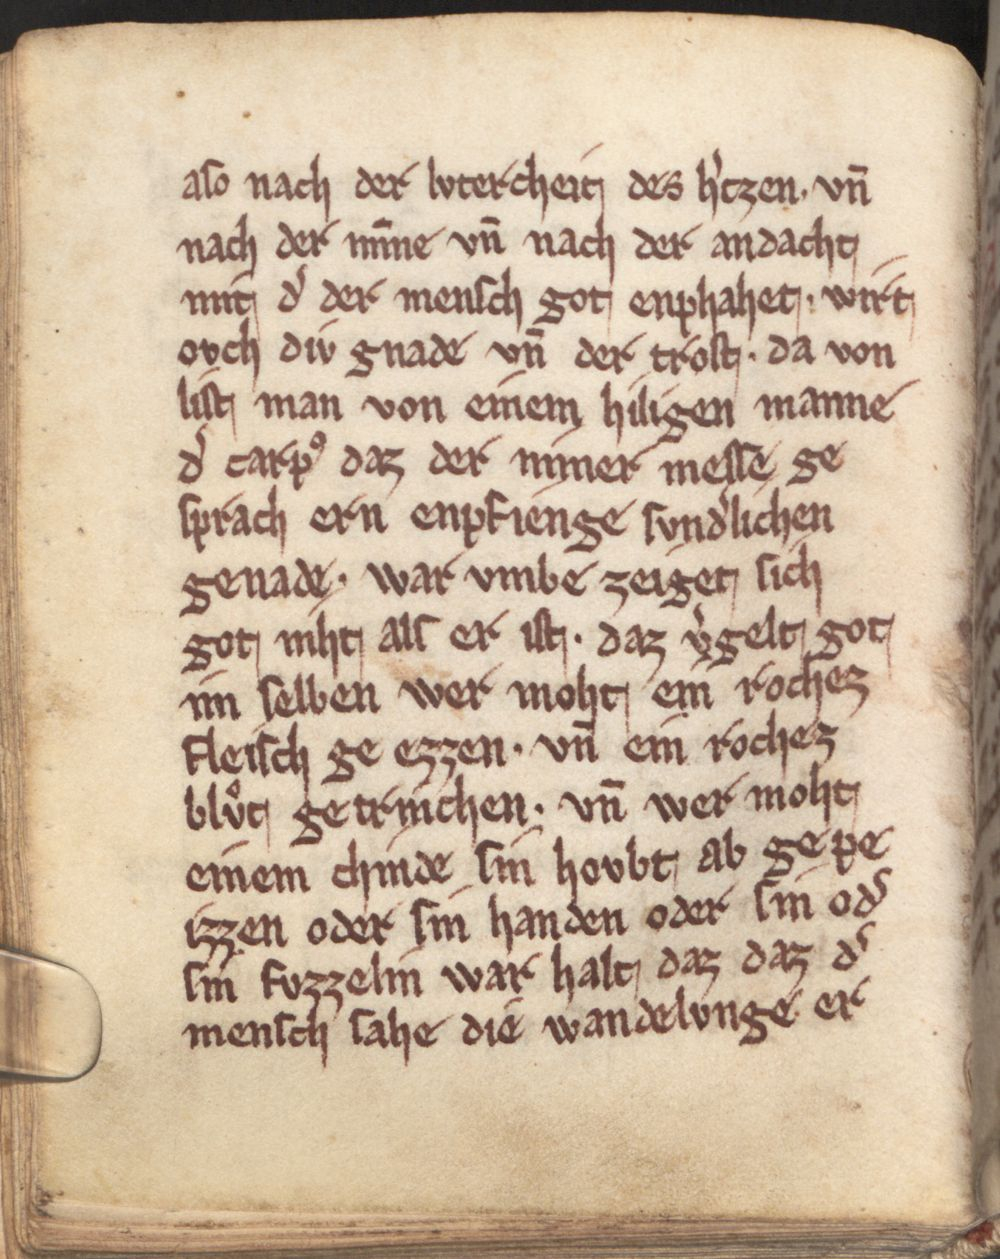 also nach der lvtercheit des h'tzen. vn̄
nach der mīne vn̄ nach der andacht
mit d' der mensch got enphahet. wirt
ovch div gnade vn̄ der trost. da von
list man von einem hiligen manne
d' carpꝰ daz der nimer messe ge
sprach ern enpfienge svnd'lichen
genade. war vmbe zeiget sich
got niht als er ist. daz v'gelt got
im selben wer moht ein rochez
fleisch ge ezzen. vn̄ ein rochez
blvͦt getrinchen. vn̄ wer moht
einem chinde sin hovbt ab ge pe
izzen oder sin handen oder sin od'
sin fvzzelin war halt daz daz d'
mensch sahe die wandelvnge er